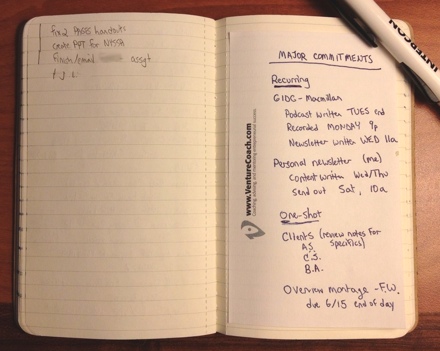 for 2 PAGES handouts
create PPT for NYSSA
Finish/email assgt
MAJOR COMMITMENTS
Recurring
GIDG - Macmillan
Podcast written TUES end
Recorded MONDAY 9p
Newsletter written WED 11a
Personal newsletter (me)
Content written Wed/Thu
Send out Sat, 10a
One-shot
Clients (review notes for
specifics)
A.S.
C.S.
B.A.
Overview montage - F.W.
due 6/15 end of day
www.VentureCoach.com
Coaching, advising, and mentoring entrepreneurial success
INTERCON